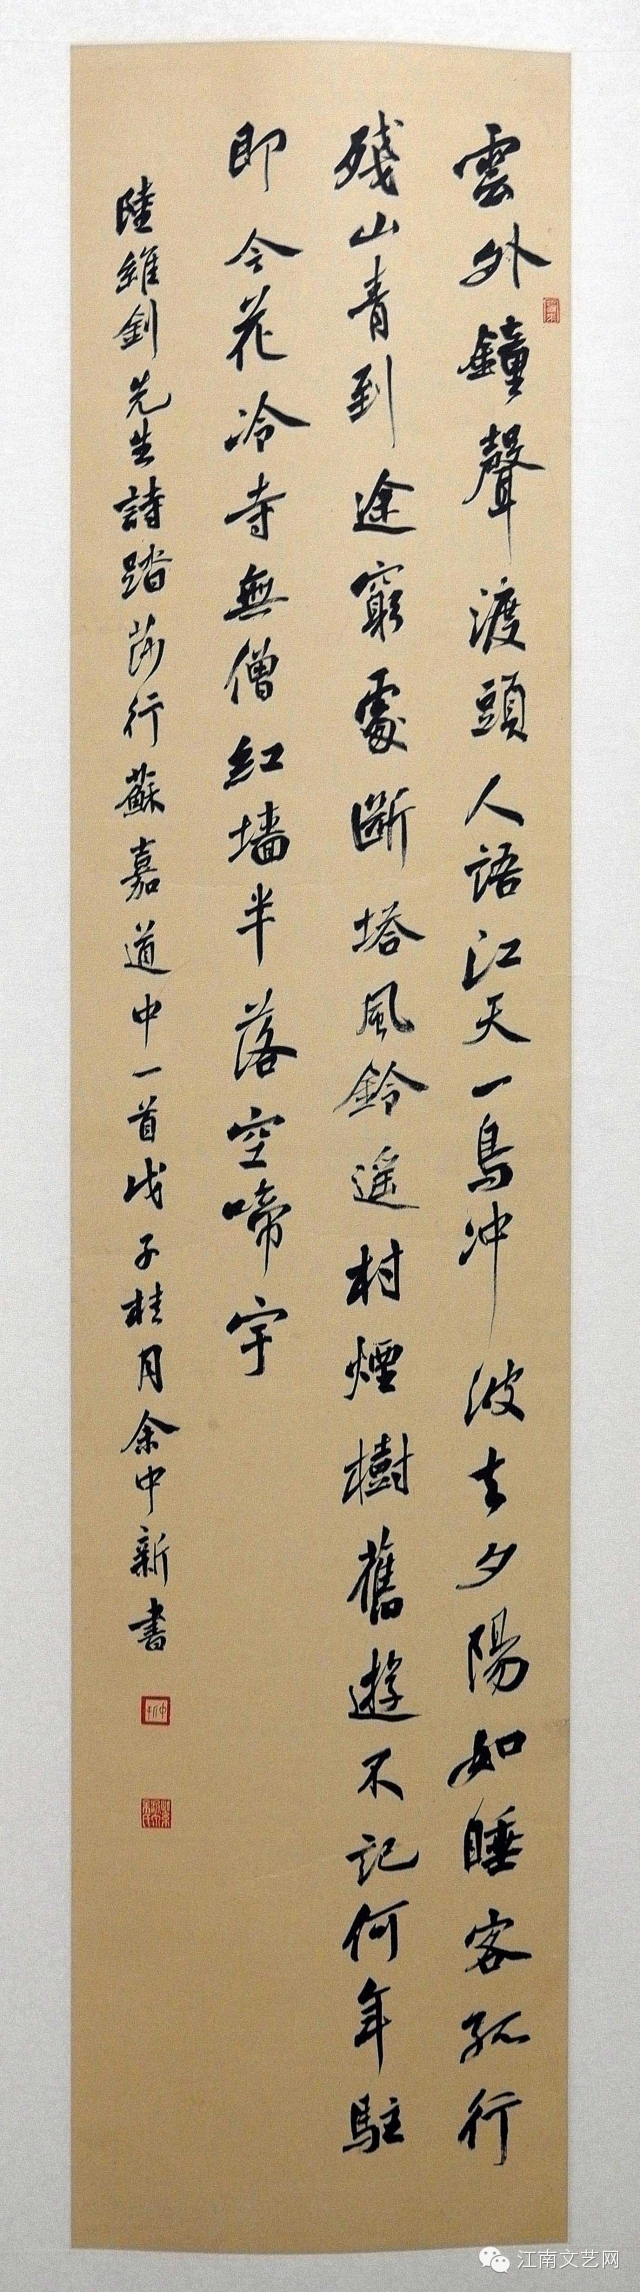 雲外鐘聲渡頭人語江天一鳥冲波去夕陽如睡客孤行
殘山青到途窮處斷塔風鈴遥村煙樹舊遊不記何年駐
即今花冷寺無僧紅墙半落空啼宇
陸維釗先生詩踏莎行蘇嘉道中一首戊子桂月余中新書
江南文艺网